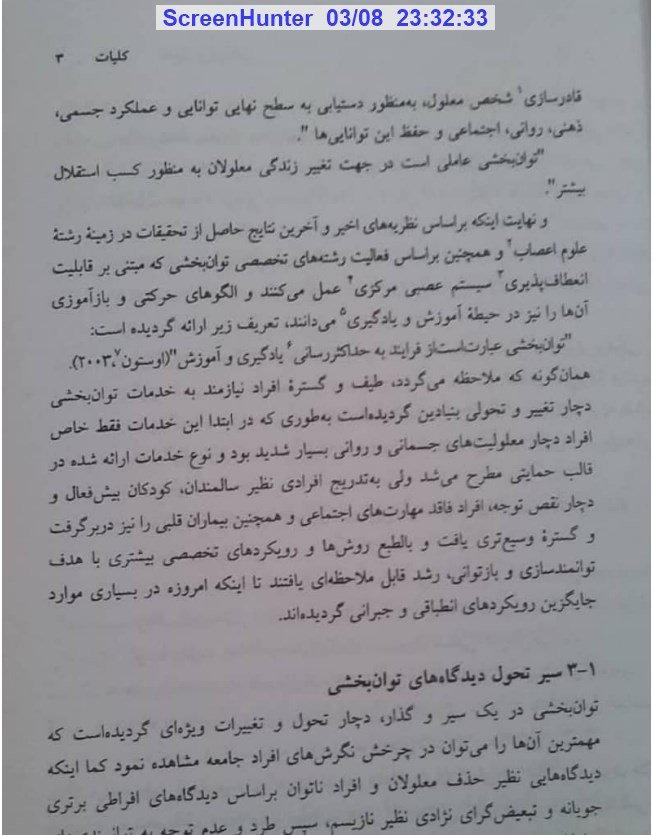 ScreenHunter 03/08 23:32:33
کلیات ۳
قادرسازی۱ شخص معلول، به‌منظور دستیابی به سطح نهایی توانایی و عملکرد جسمی،
ذهنی، روانی، اجتماعی و حفظ این توانایی‌ها ".
"توان‌بخشی عاملی است در جهت تغییر زندگی معلولان به منظور کسب استقلال
بیشتر".
و نهایت اینکه براساس نظریه‌های اخیر و آخرین نتایج حاصل از تحقیقات در زمینهٔ رشتهٔ
علوم اعصاب۲ و همچنین براساس فعالیت رشته‌های تخصصی توان‌بخشی که مبتنی بر قابلیت
انعطاف‌پذیری۳ سیستم عصبی مرکزی۴ عمل می‌کنند و الگوهای حرکتی و بازآموزی
آن‌ها را نیز در حیطهٔ آموزش و یادگیری۵ می‌دانند، تعریف زیر ارائه گردیده است:
"توان‌بخشی عبارت‌است‌از فرایند به حداکثررسانی۶ یادگیری و آموزش"(اوستون۷،۲۰۰۳).
همان‌گونه که ملاحظه می‌گردد، طیف و گسترهٔ افراد نیازمند به خدمات توان‌بخشی
دچار تغییر و تحولی بنیادین گردیده‌است به‌طوری که در ابتدا این خدمات فقط خاص
افراد دچار معلولیت‌های جسمانی و روانی بسیار شدید بود و نوع خدمات ارائه شده در
قالب حمایتی مطرح می‌شد ولی به‌تدریج افرادی نظیر سالمندان، کودکان بیش‌فعال و
دچار نقص توجه، افراد فاقد مهارت‌های اجتماعی و همچنین بیماران قلبی را نیز دربرگرفت
و گسترهٔ وسیع‌تری یافت و بالطبع روش‌ها و رویکردهای تخصصی بیشتری با هدف
توانمندسازی و بازتوانی، رشد قابل ملاحظه‌ای یافتند تا اینکه امروزه در بسیاری موارد
جایگزین رویکردهای انطباقی و جبرانی گردیده‌اند.
۳-۱ سیر تحول دیدگاه‌های توان‌بخشی
توان‌بخشی در یک سیر و گذار، دچار تحول و تغییرات ویژه‌ای گردیده‌است که
مهمترین آن‌ها را می‌توان در چرخش نگرش‌های افراد جامعه مشاهده نمود کما اینکه
دیدگاه‌هایی نظیر حذف معلولان و افراد ناتوان براساس دیدگاه‌های افراطی برتری
جویانه و تبعیض‌گرای نژادی نظیر نازیسم، سپس طرد و عدم توجه به